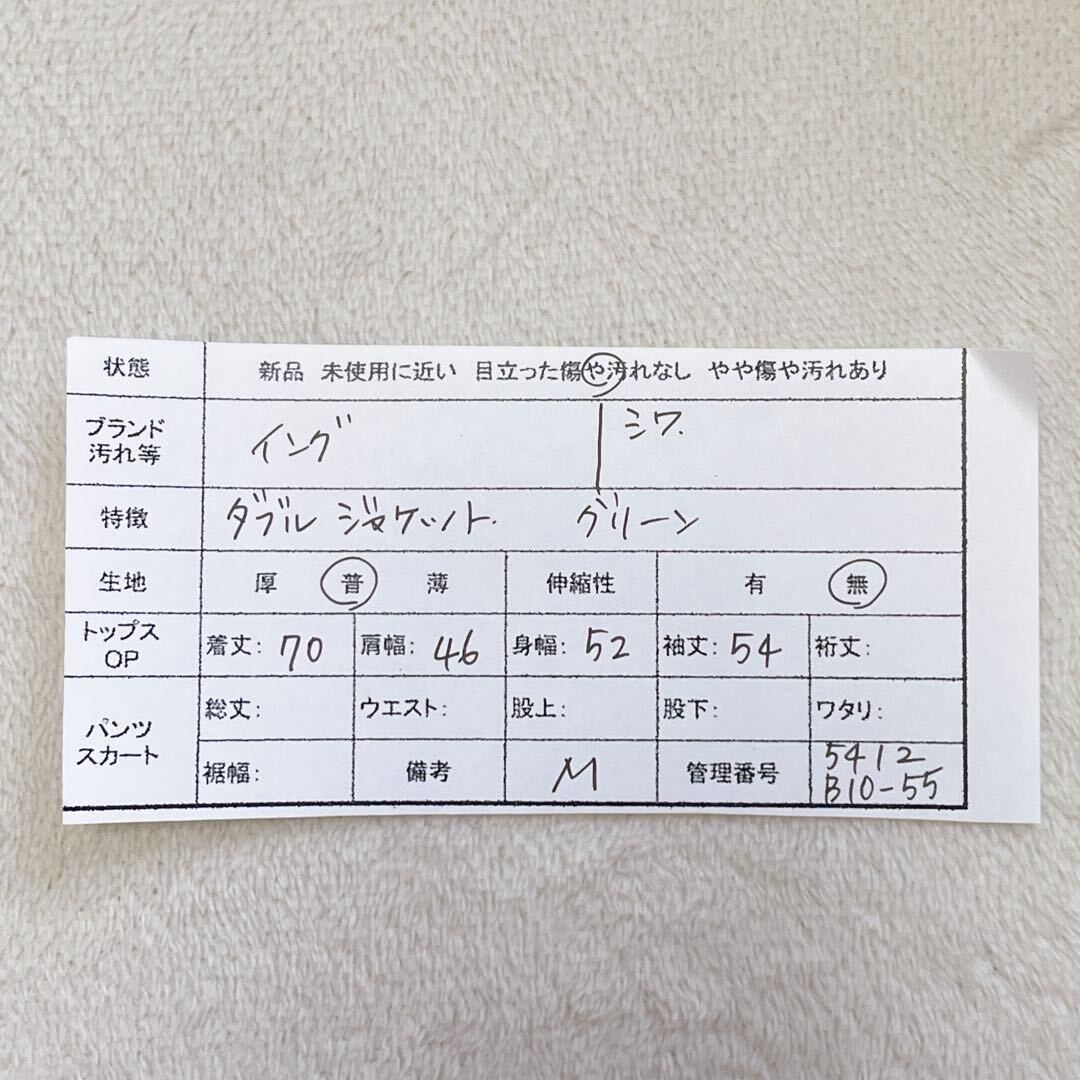 状態 新品 未使用に近い 目立った傷や汚れなし やや傷や汚れあり
ブランド
汚れ等 イング シワ.
特徴 ダブル ジャケット. グリーン
生地 厚 普 薄 伸縮性 有 無
トップス
OP 着丈: 70 肩幅: 46 身幅: 52 袖丈: 54 裄丈:
パンツ
スカート
総丈: ウエスト: 股上: 股下: ワタリ:
裾幅: 備考 M 管理番号 5412
B10-55